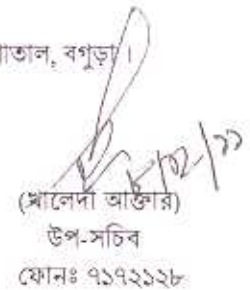 াতাল, বগুড়া।
(খালেদা আক্তার)
উপ-সচিব
ফোনঃ ৭১৭২১২৮